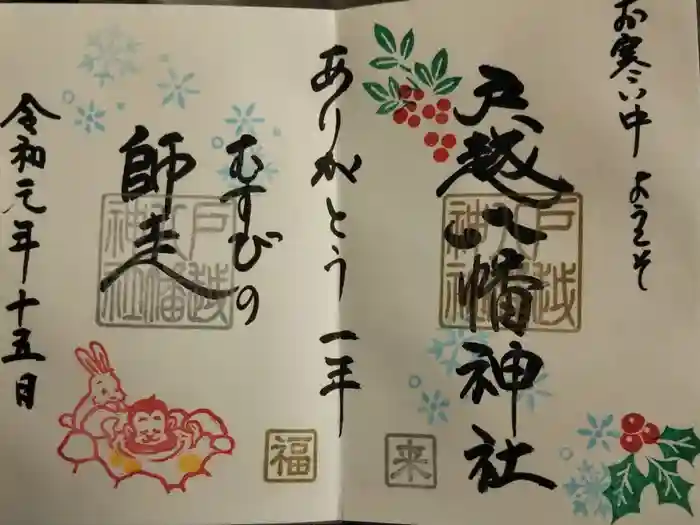 お寒い中 ようこそ
戸越八幡神社
戸越
八幡
神社
来
ありがとう 一年
むすびの
師走
戸越
八幡
神社
福
令和元年十五日